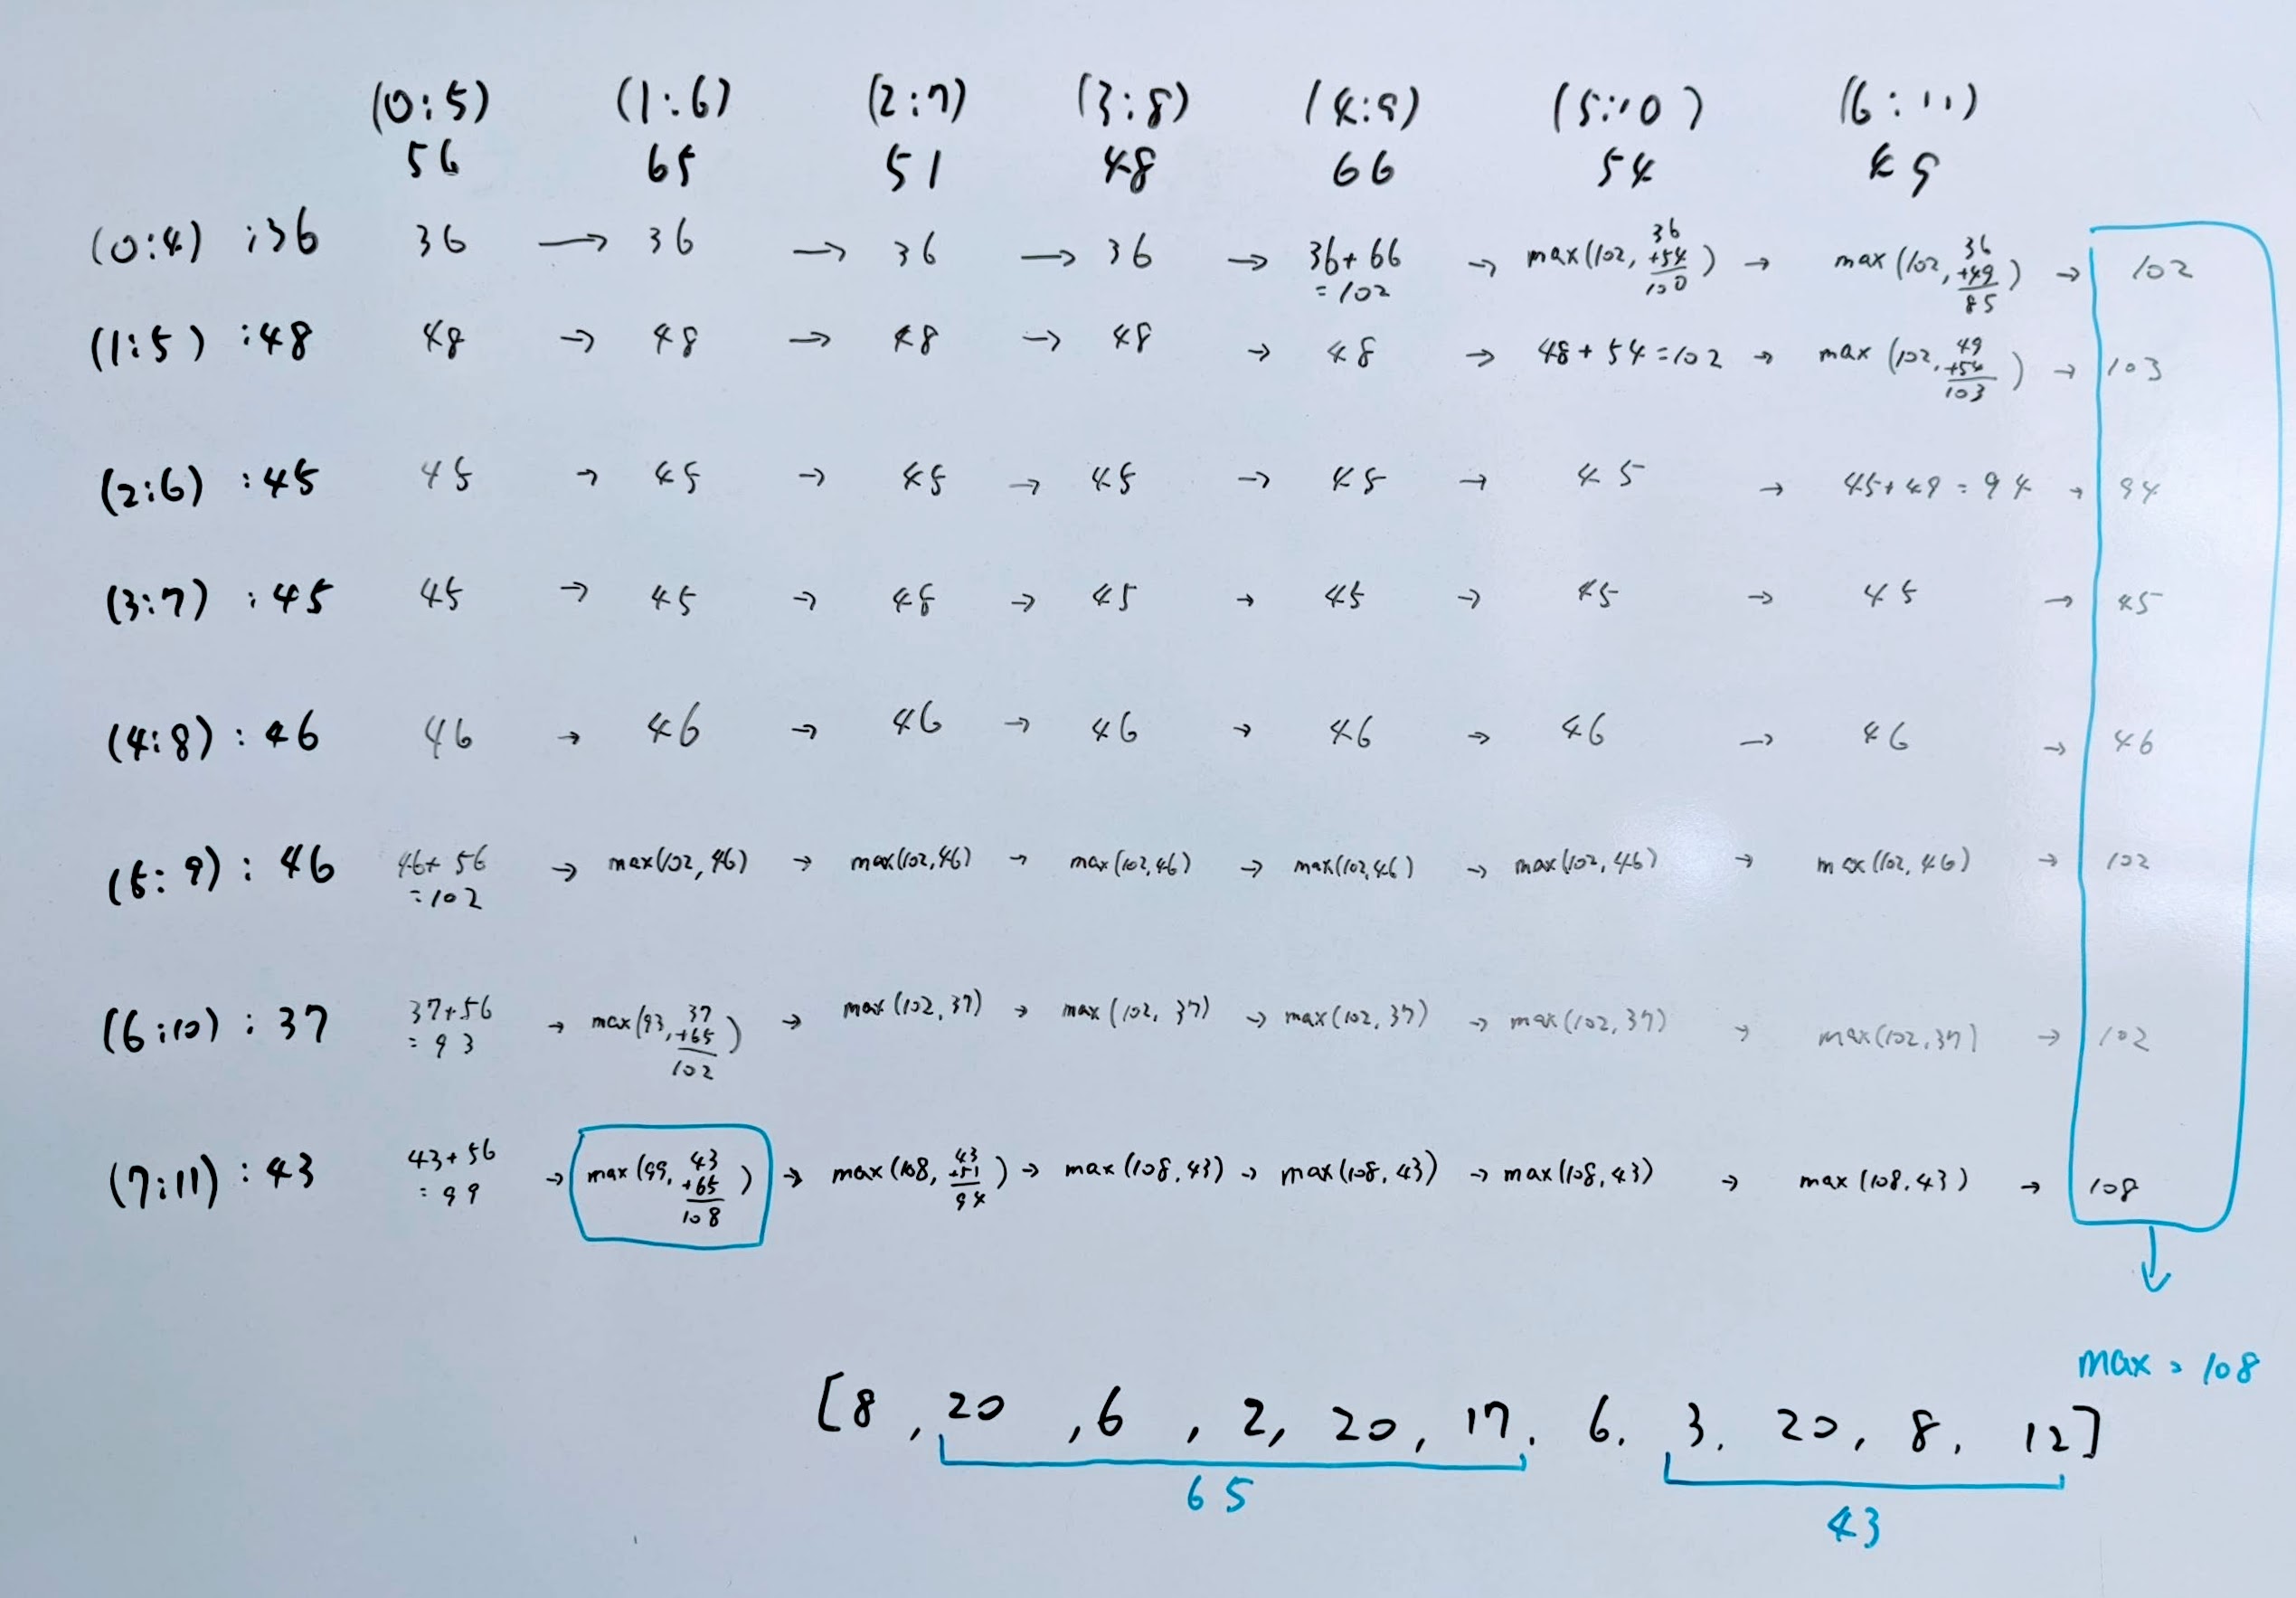 (0:5) (1:6) (2:7) (3:8) (4:9) (5:10) (6:11)
56 65 51 48 66 54 49
(0:4) :36 36 → 36 → 36 → 36 → 36+66 =102 → max(102, 36 +54 100) → max(102, 36 +49 85) → 102
(1:5) :48 48 → 48 → 48 → 48 → 48 → 48+54=102 → max(102, 49 +54 103) → 103
(2:6) :45 45 → 45 → 45 → 45 → 45 → 45 → 45+49=94 → 94
(3:7) :45 45 → 45 → 45 → 45 → 45 → 45 → 45 → 45
(4:8) : 46 46 → 46 → 46 → 46 → 46 → 46 → 46 → 46
(5:9) : 46 46+56 =102 → max(102,46) → max(102,46) → max(102,46) → max(102,46) → max(102,46) → max(102,46) → 102
(6:10) : 37 37+56 = 93 → max(93, 37 +65 102) → max(102,37) → max(102,37) → max(102,37) → max(102,37) → max(102,37) → 102
(7:11) : 43 43+56 = 99 → max(99, 43 +65 108) → max(108, 43 +51 94) → max(108,43) → max(108,43) → max(108,43) → max(108,43) → 108
max = 108
[8, 20, 6, 2, 20, 17, 6, 3, 20, 8, 12]
65 43